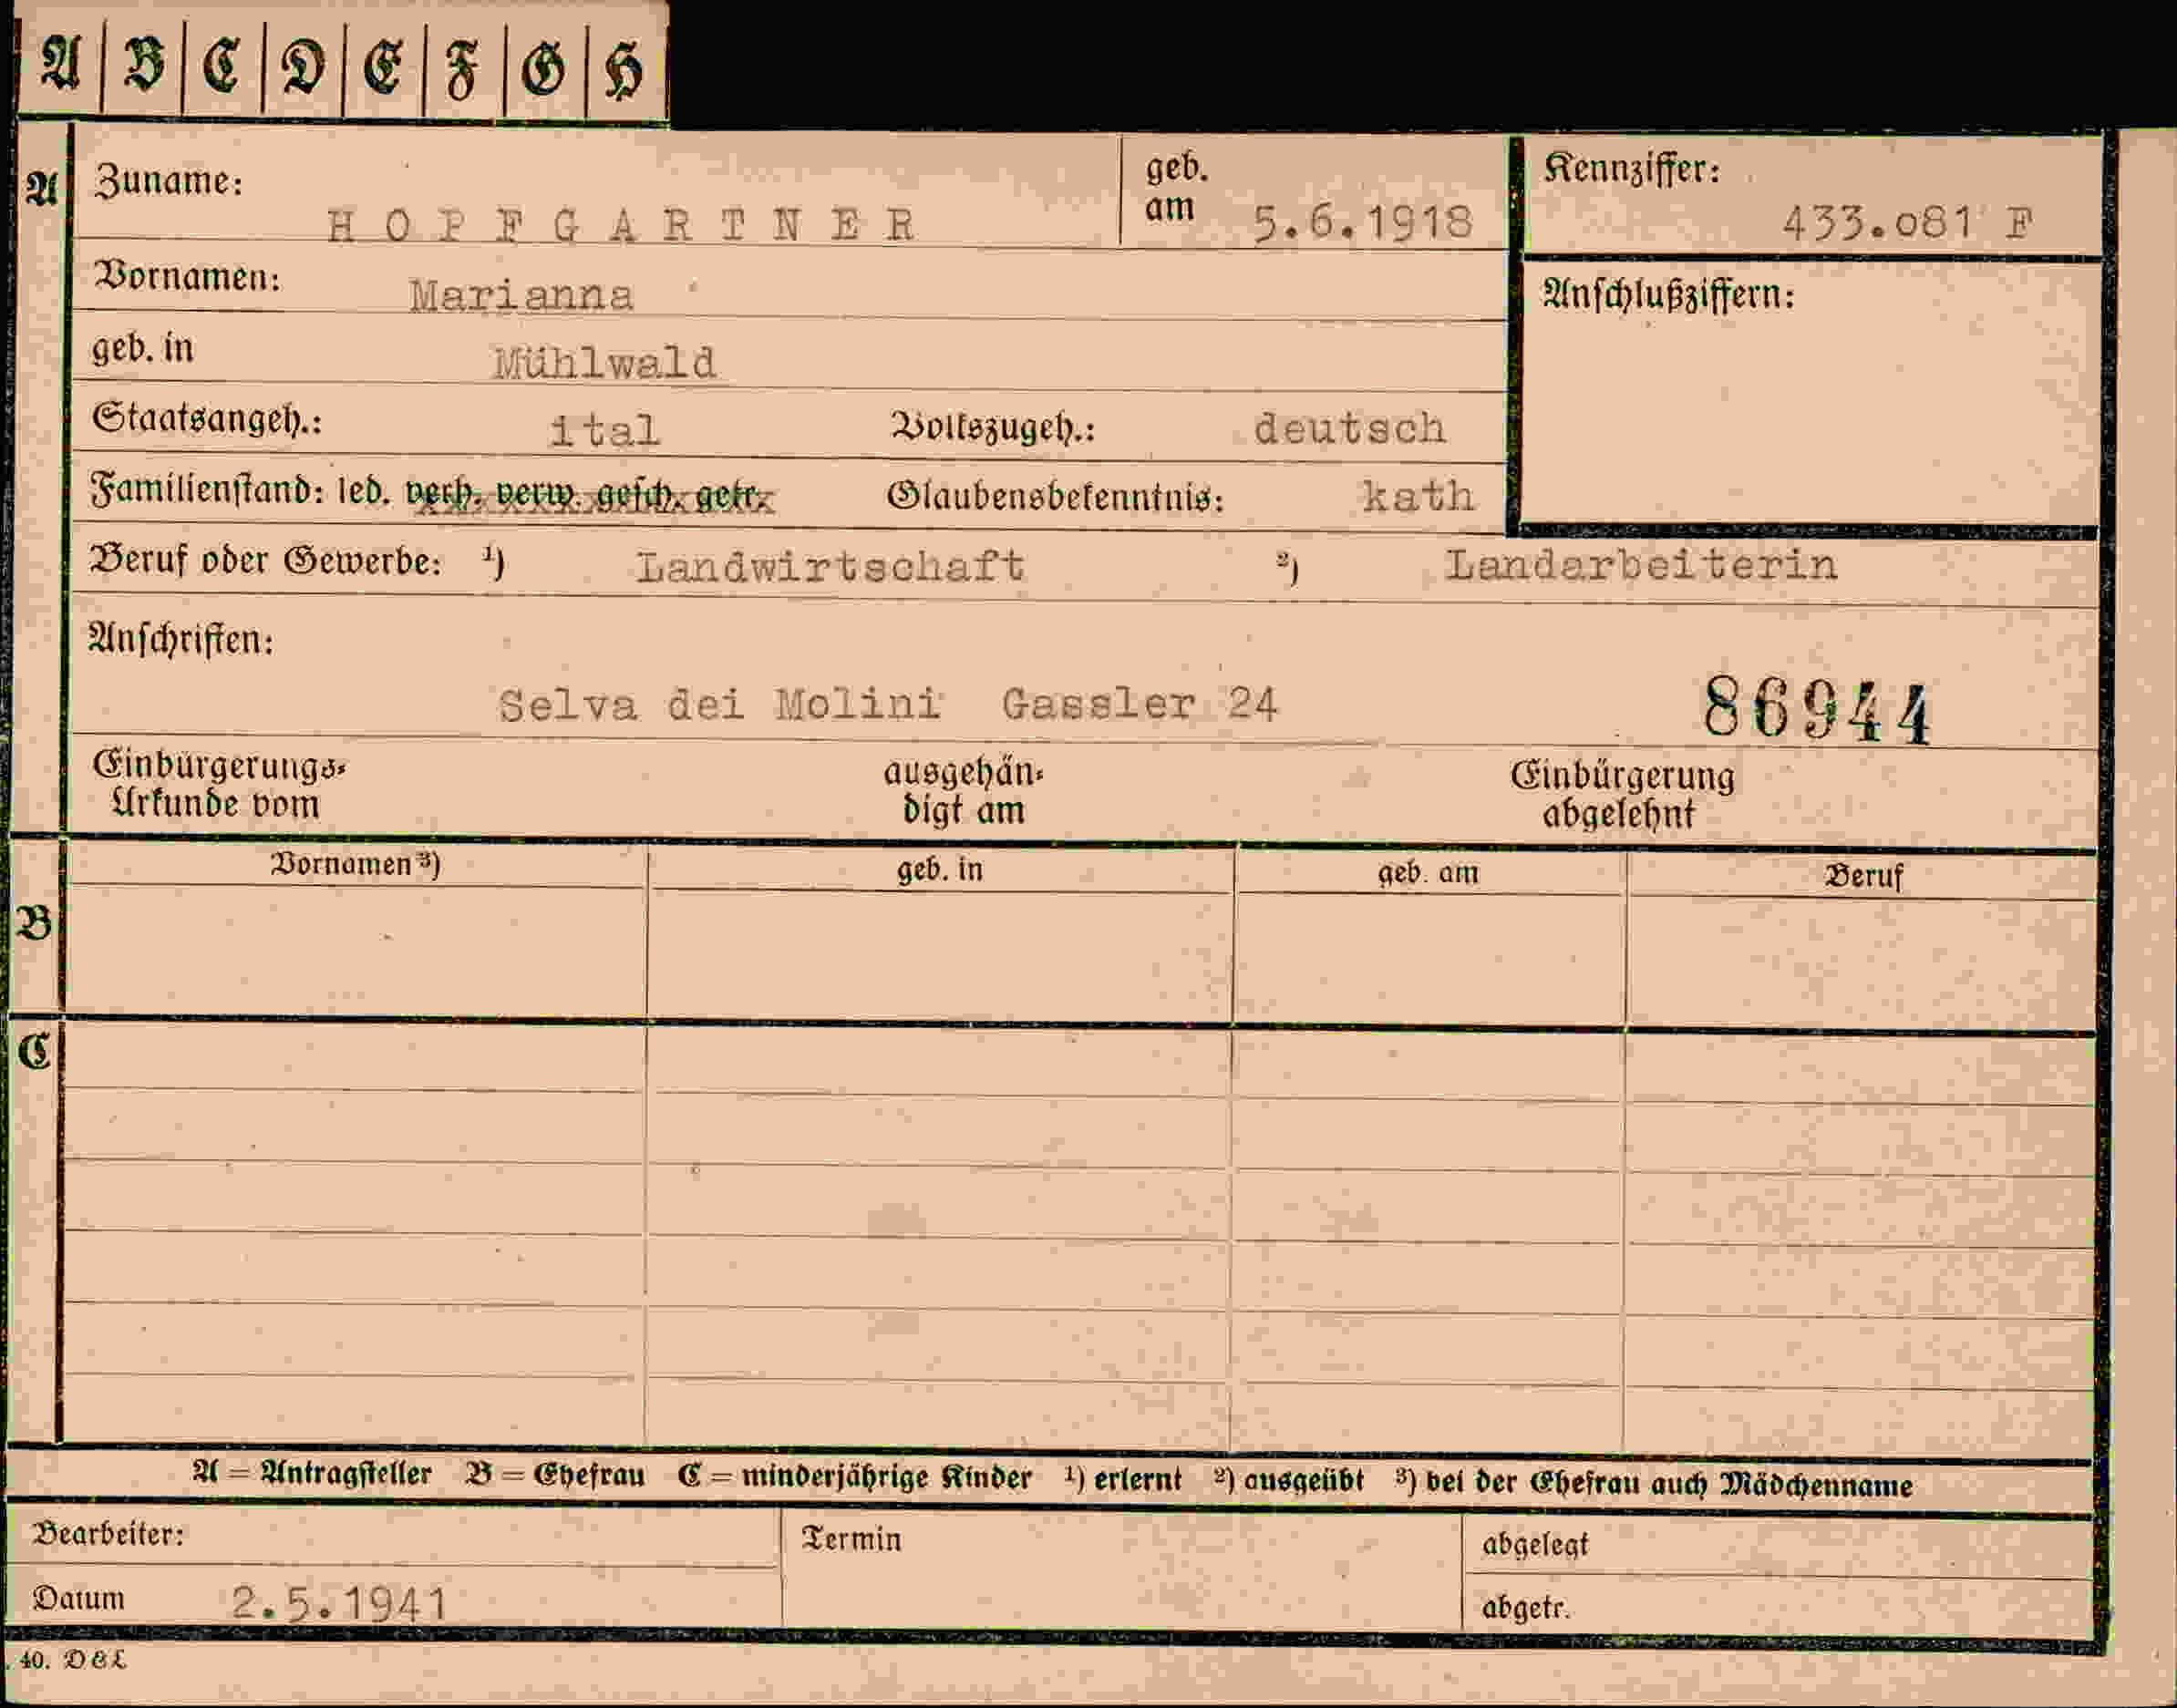 A B C D E F G H
A Zuname: HOPFGARTNER geb. am 5.6.1918 Kennziffer: 433.o81 F
Vornamen: Marianna Anschlußziffern:
geb. in Mühlwald
Staatsangeh.: ital Volkszugeh.: deutsch
Familienstand: led. verh. verw. gesch. getr. Glaubensbekenntnis: kath
Beruf oder Gewerbe: 1) Landwirtschaft 2) Landarbeiterin
Anschriften:
Selva dei Molini Gassler 24 86944
Einbürgerungs- ausgehän- Einbürgerung
Urkunde vom digt am abgelehnt
Vornamen 3) geb. in geb. am Beruf
B
C
A = Antragsteller B = Ehefrau C = minderjährige Kinder 1) erlernt 2) ausgeübt 3) bei der Ehefrau auch Mädchenname
Bearbeiter: Termin abgelegt
Datum 2.5.1941 abgetr.
40. D&L